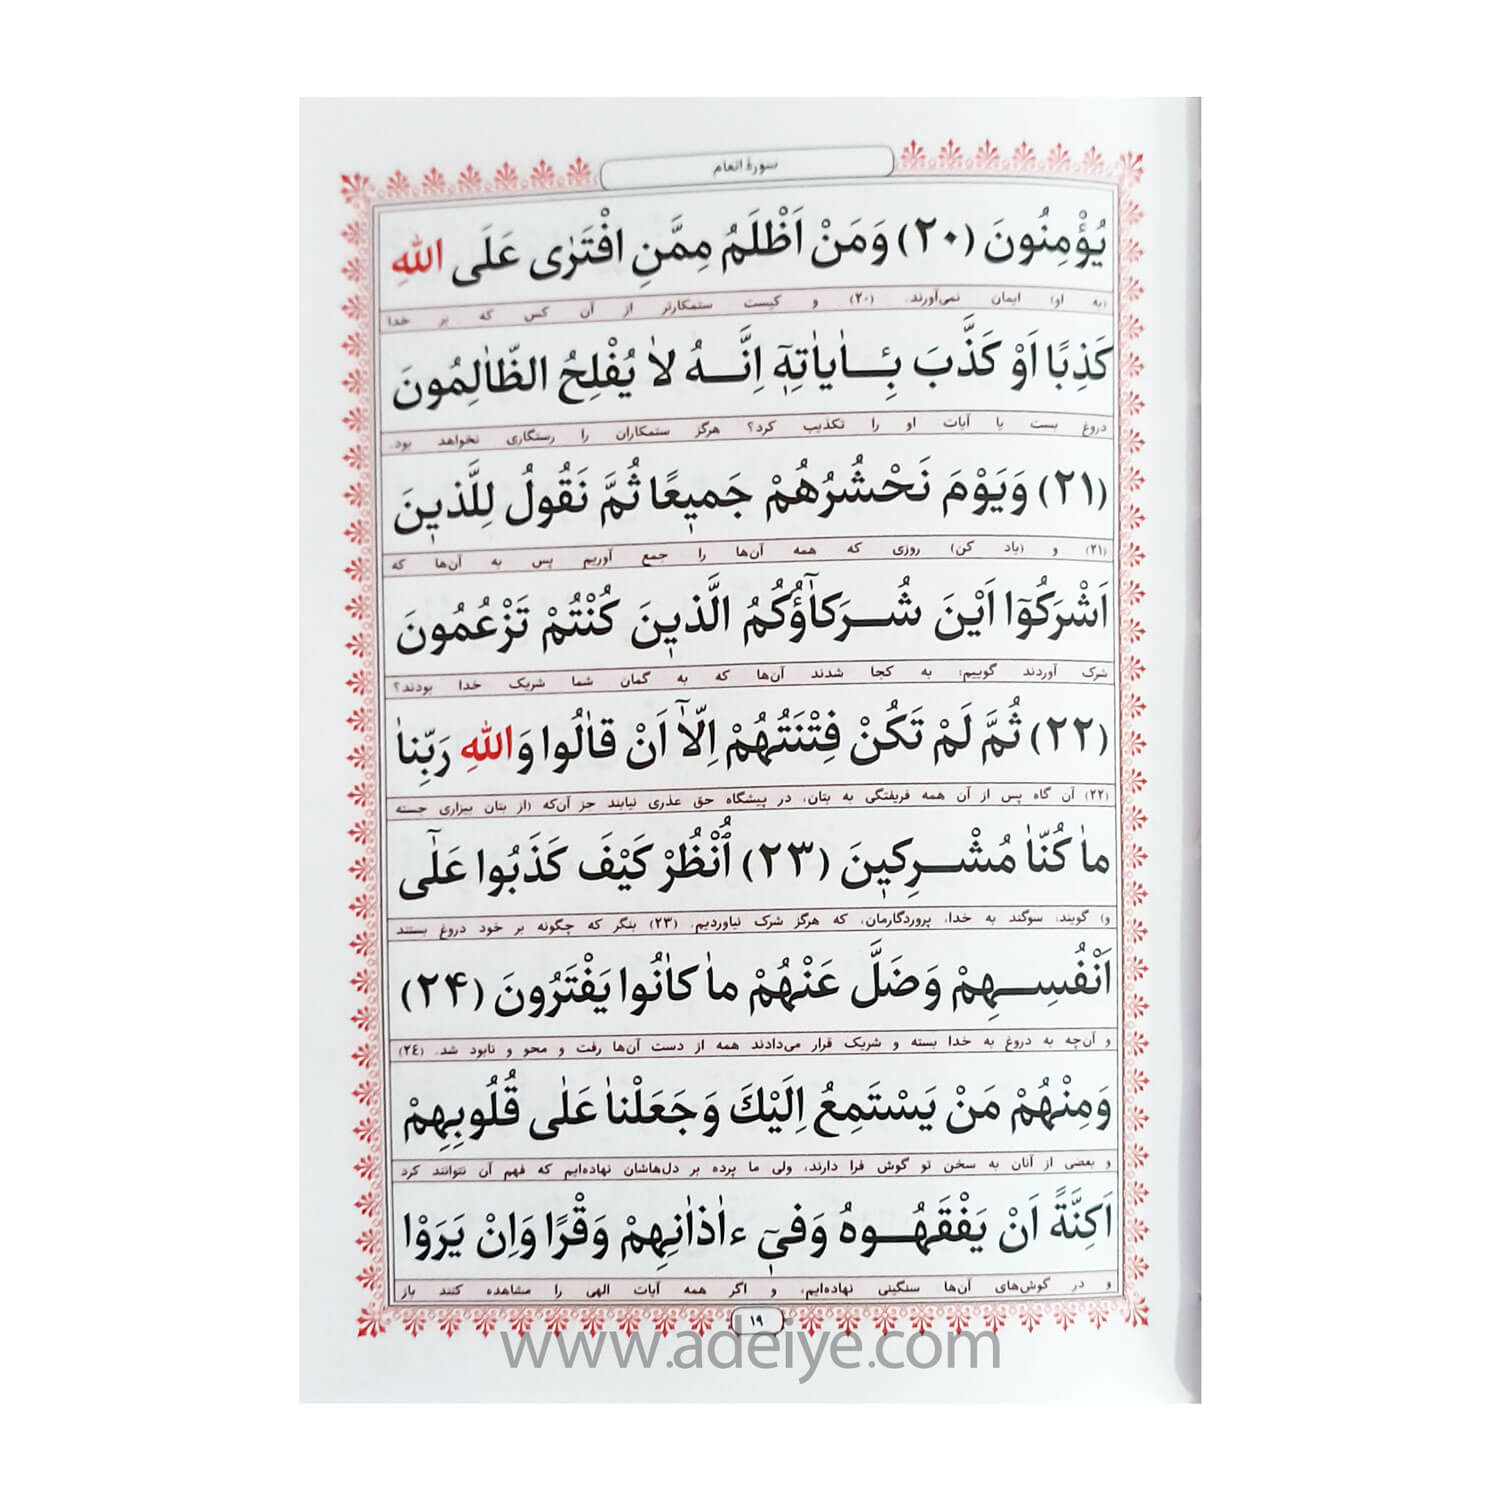 سورهٔ انعام
يُؤْمِنُونَ (۲۰) وَمَنْ اَظْلَمُ مِمَّنِ افْتَرٰى عَلَى اللّٰهِ
(به او) ایمان نمی‌آورند. (۲۰) و کیست ستمکارتر از آن کس که بر خدا
كَذِبًا اَوْ كَذَّبَ بِـٔاٰيَاتِهٖٓ اِنَّـهُ لاٰ يُفْلِحُ الظّٰالِمُونَ
دروغ بست یا آیات او را تکذیب کرد؟ هرگز ستمکاران را رستگاری نخواهد بود.
(۲۱) وَيَوْمَ نَحْشُرُهُمْ جَمٖيعًا ثُمَّ نَقُولُ لِلَّذٖينَ
(۲۱) و (یاد کن) روزی که همه آن‌ها را جمع آوریم پس به آن‌ها که
اَشْرَكُوٓا اَيْنَ شُـرَكٰٓاؤُكُمُ الَّذٖينَ كُنْتُمْ تَزْعُمُونَ
شرک آوردند گوییم: به کجا شدند آن‌ها که به گمان شما شریک خدا بودند؟
(۲۲) ثُمَّ لَمْ تَكُنْ فِتْنَتُهُمْ اِلّآٰ اَنْ قٰالُوا وَاللّٰهِ رَبِّنٰا
(۲۲) آن گاه پس از آن همه فریفتگی به بتان، در پیشگاه حق عذری نیابند جز آن‌که (از بتان بیزاری جسته
مٰا كُنّٰا مُشْـرِكٖينَ (۲۳) اُنْظُرْ كَيْفَ كَذَبُوا عَلٰٓى
و) گویند: سوگند به خدا، پروردگارمان، که هرگز شرک نیاوردیم. (۲۳) بنگر که چگونه بر خود دروغ بستند
اَنْفُسِـهِمْ وَضَلَّ عَنْهُمْ مٰا كٰانُوا يَفْتَرُونَ (۲۴)
و آن‌چه به دروغ به خدا بسته و شریک قرار می‌دادند همه از دست آن‌ها رفت و محو و نابود شد. (۲٤)
وَمِنْهُمْ مَنْ يَسْتَمِعُ اِلَيْكَ وَجَعَلْنٰا عَلٰى قُلُوبِهِمْ
و بعضی از آنان به سخن تو گوش فرا دارند، ولی ما پرده بر دل‌هاشان نهاده‌ایم که فهم آن نتوانند کرد
اَكِنَّةً اَنْ يَفْقَهُـوهُ وَفٖىٓ ءاٰذٰانِهِمْ وَقْرًا وَاِنْ يَرَوْا
و در گوش‌های آن‌ها سنگینی نهاده‌ایم، و اگر همه آیات الهی را مشاهده کنند باز
۱۹
www.adeiye.com